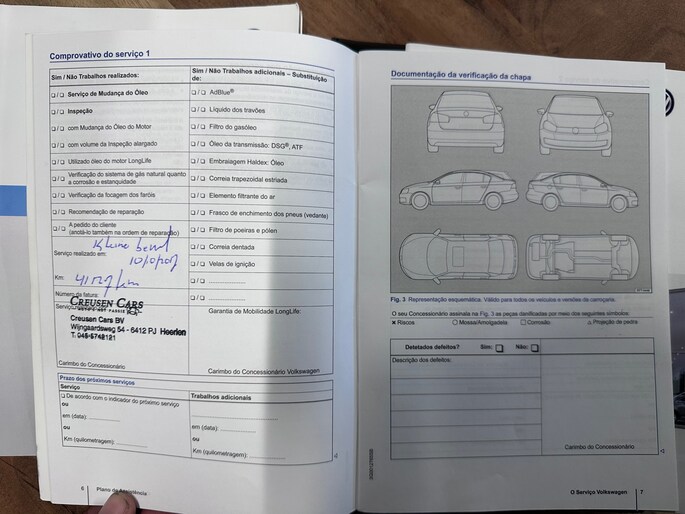 Comprovativo do serviço 1
Sim / Não Trabalhos realizados:
❏ / ❏ Serviço de Mudança do Óleo
❏ / ❏ Inspeção
❏ / ❏ com Mudança do Óleo do Motor
❏ / ❏ com volume da Inspeção alargado
❏ / ❏ Utilizado óleo do motor LongLife
❏ / ❏ Verificação do sistema de gás natural quanto
a corrosão e estanquidade
❏ / ❏ Verificação da focagem dos faróis
❏ / ❏ Recomendação de reparação
❏ / ❏ A pedido do cliente
(anotá-lo também na ordem de reparação)
Serviço realizado em:
Km:
Número da fatura:
CREUSEN CARS
Creusen Cars BV
Wijngaardsweg 54 - 6412 PJ Heerlen
T. 045-5742121
Carimbo do Concessionário
Sim / Não Trabalhos adicionais – Substituição
de:
❏ / ❏ AdBlue®
❏ / ❏ Líquido dos travões
❏ / ❏ Filtro do gasóleo
❏ / ❏ Óleo da transmissão: DSG®, ATF
❏ / ❏ Embraiagem Haldex: Óleo
❏ / ❏ Correia trapezoidal estriada
❏ / ❏ Elemento filtrante do ar
❏ / ❏ Frasco de enchimento dos pneus (vedante)
❏ / ❏ Filtro de poeiras e pólen
❏ / ❏ Correia dentada
❏ / ❏ Velas de ignição
❏ / ❏ ....................
❏ / ❏ ....................
Garantia de Mobilidade LongLife:
Carimbo do Concessionário Volkswagen
Prazo dos próximos serviços
Serviço
❏ De acordo com o indicador do próximo serviço
ou
em (data): ....................
ou
Km (quilometragem): ....................
Trabalhos adicionais
....................
em (data): ....................
ou
Km (quilometragem): ....................
6 Plano de Assistência
Documentação da verificação da chapa
Fig. 3 Representação esquemática. Válido para todos os veículos e versões da carroçaria.
O seu Concessionário assinala na Fig. 3 as peças danificadas por meio dos seguintes símbolos:
✕ Riscos ❍ Mossa/Amolgadela ❏ Corrosão △ Projeção de pedra
Detetados defeitos? Sim: ❏ Não: ❏
Descrição dos defeitos:
Carimbo do Concessionário
O Serviço Volkswagen 7